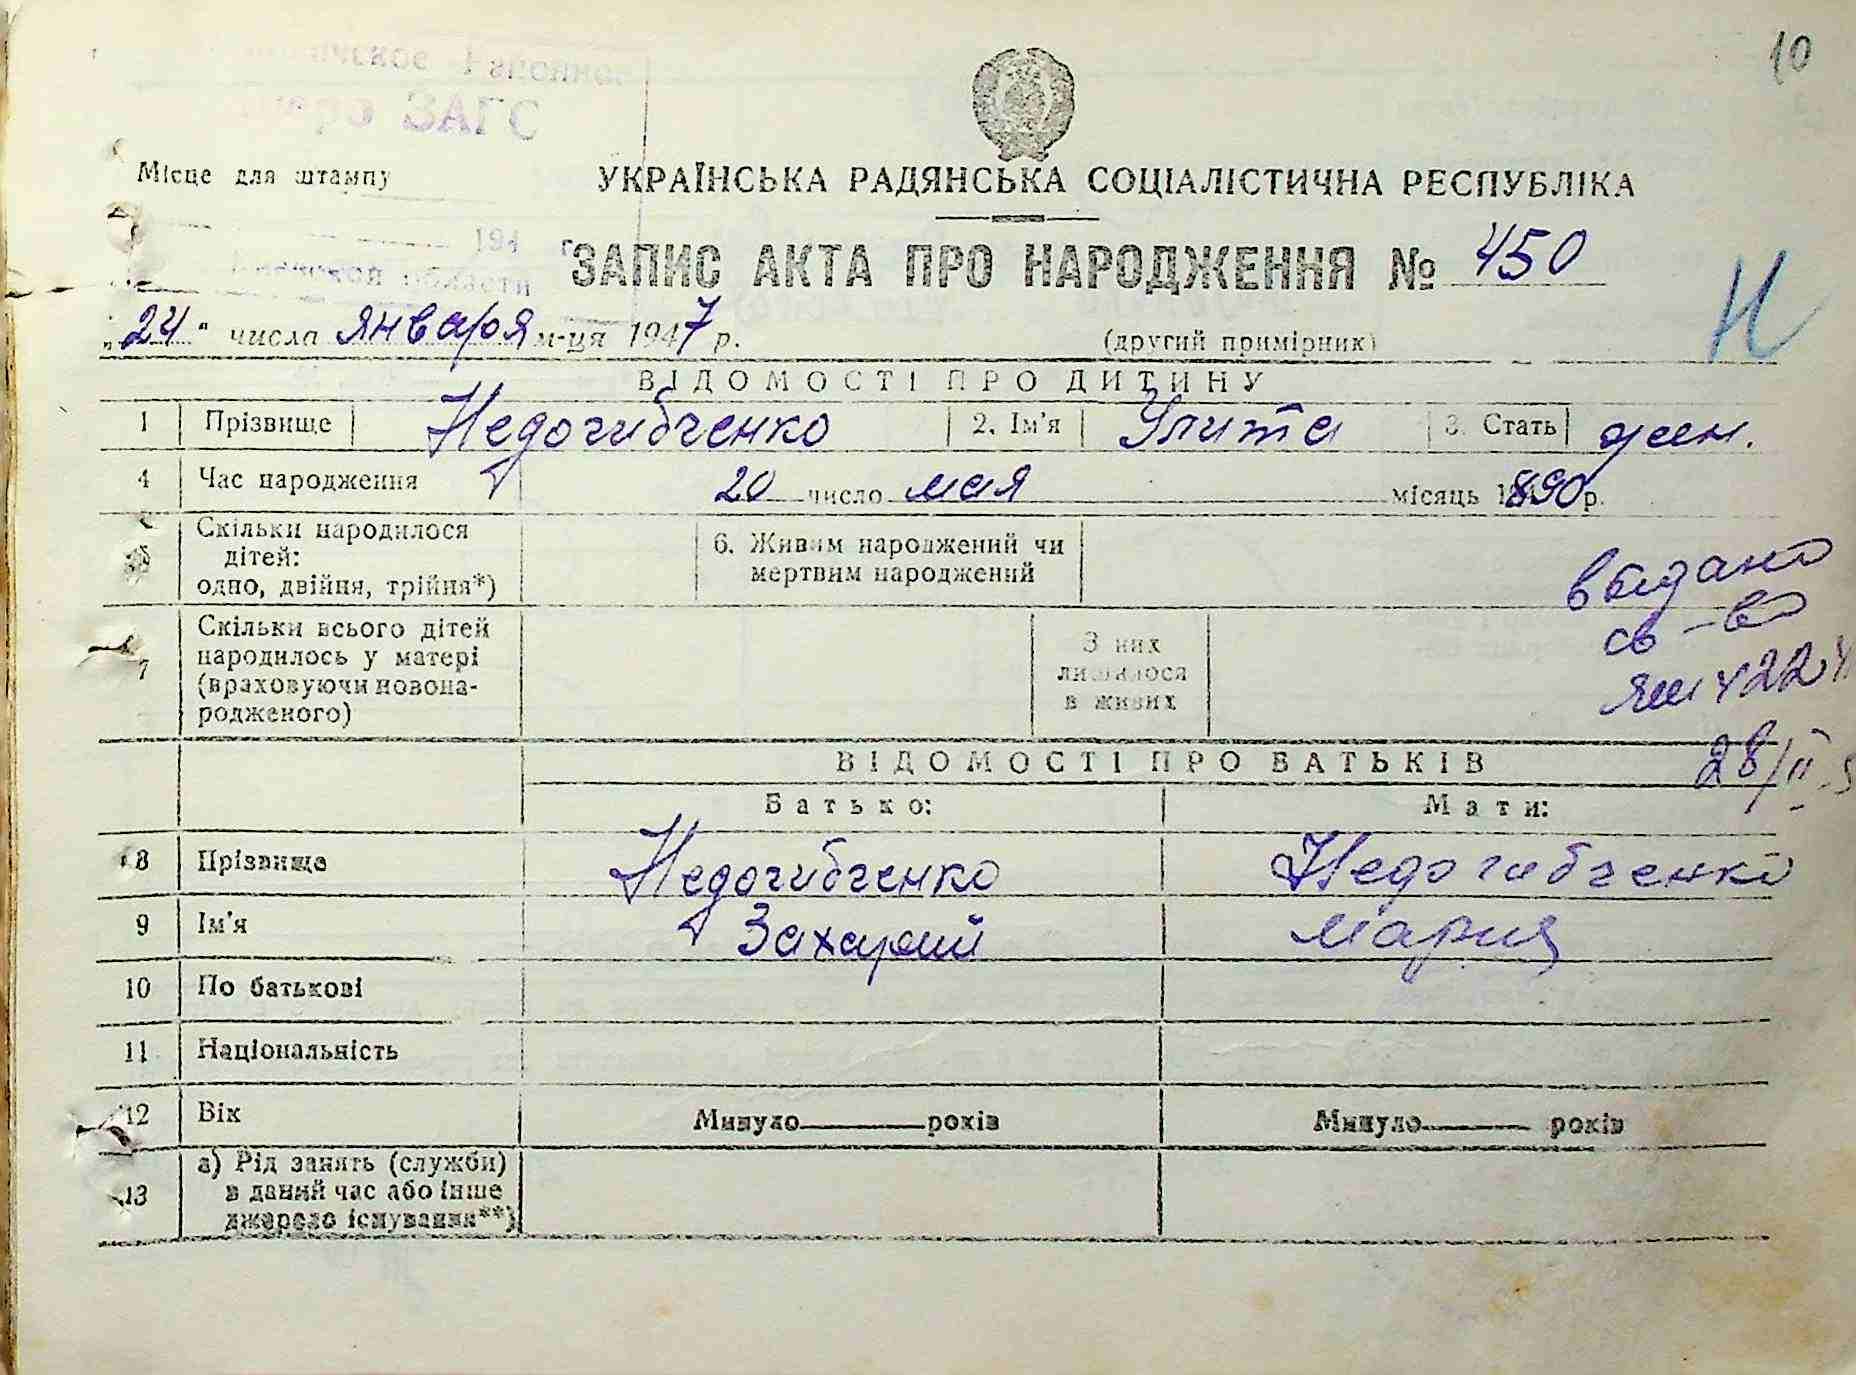 10
ЗАГС
Місце для штампу
УКРАЇНСЬКА РАДЯНСЬКА СОЦІАЛІСТИЧНА РЕСПУБЛІКА
194 г.
области
ЗАПИС АКТА ПРО НАРОДЖЕННЯ № 450
Н
„24" числа января м-ця 1947 р.
(другий примірник)
ВІДОМОСТІ ПРО ДИТИНУ
1 Прізвище Недогибченко 2. Ім'я Улита 3. Стать жен.
4 Час народження 20 число мая місяць 1890 р.
5 Скільки народилося дітей: одно, двійня, трійня*) 6. Живим народжений чи мертвим народжений
выдано
св-во
28/II
7 Скільки всього дітей народилось у матері (враховуючи новонародженого) З них лишилося в живих
ВІДОМОСТІ ПРО БАТЬКІВ
Батько: Мати:
8 Прізвище Недогибченко Недогибченко
9 Ім'я Захарий Мария
10 По батькові
11 Національність
12 Вік Минуло років Минуло років
13 а) Рід занять (служби) в даний час або інше джерело існування**)